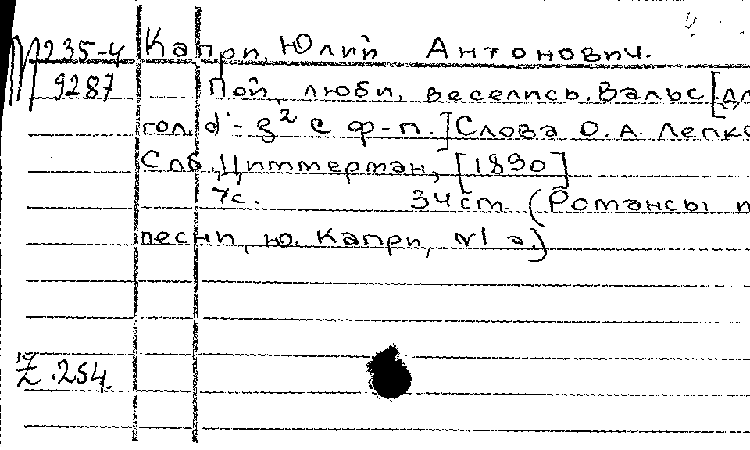 М 235-4 Капри, Юлий Антонович.
9287 Пой, люби, веселись. Вальс [дл
гол. d' - g² с ф-п.] Слова О. А. Лепко
Спб., Циммерман, [1890]
7с. 34 см. (Романсы и
песни, ю. Капри, №1 а.)
Z.254.